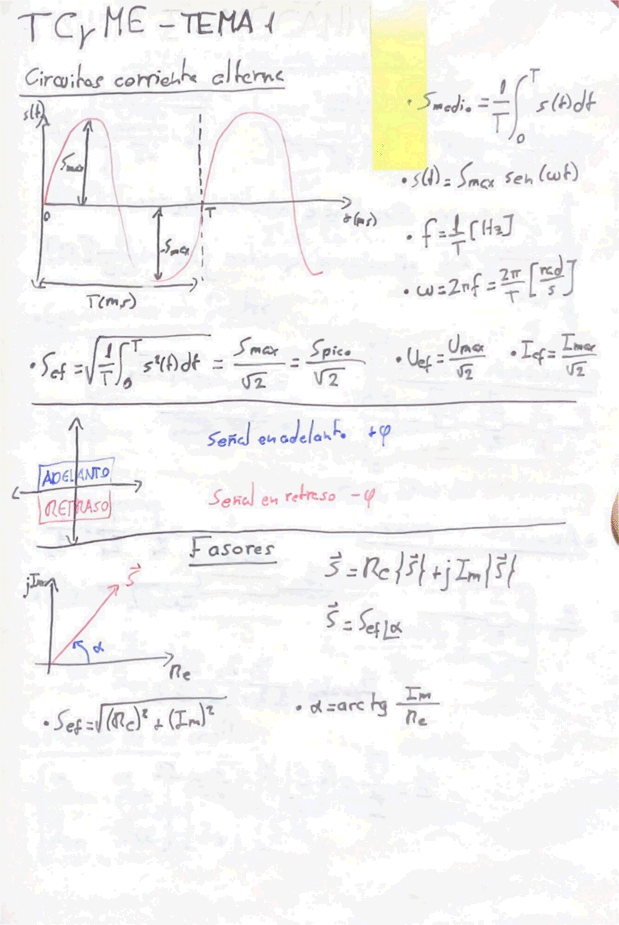 TCyME - TEMA 1
Circuitos corriente alterna
s(t)
Smax
0
T
t(ms)
Smax
T(ms)
• Smedio = 1/T ∫₀ᵀ s(t)dt
• s(t) = Smax sen(ωt)
• f = 1/T [Hz]
• ω = 2πf = 2π/T [rad/s]
• Sef = √(1/T ∫₀ᵀ s²(t)dt) = Smax/√2 = Spico/√2 • Uef = Umax/√2 • Ief = Imax/√2
ADELANTO
RETRASO
Señal en adelanto +φ
Señal en retraso -φ
Fasores
jIm
S⃗
α
Re
S⃗ = Re{S⃗} + jIm{S⃗}
S⃗ = Sef∠α
• Sef = √((Re)² + (Im)²) • α = arc tg Im/Re